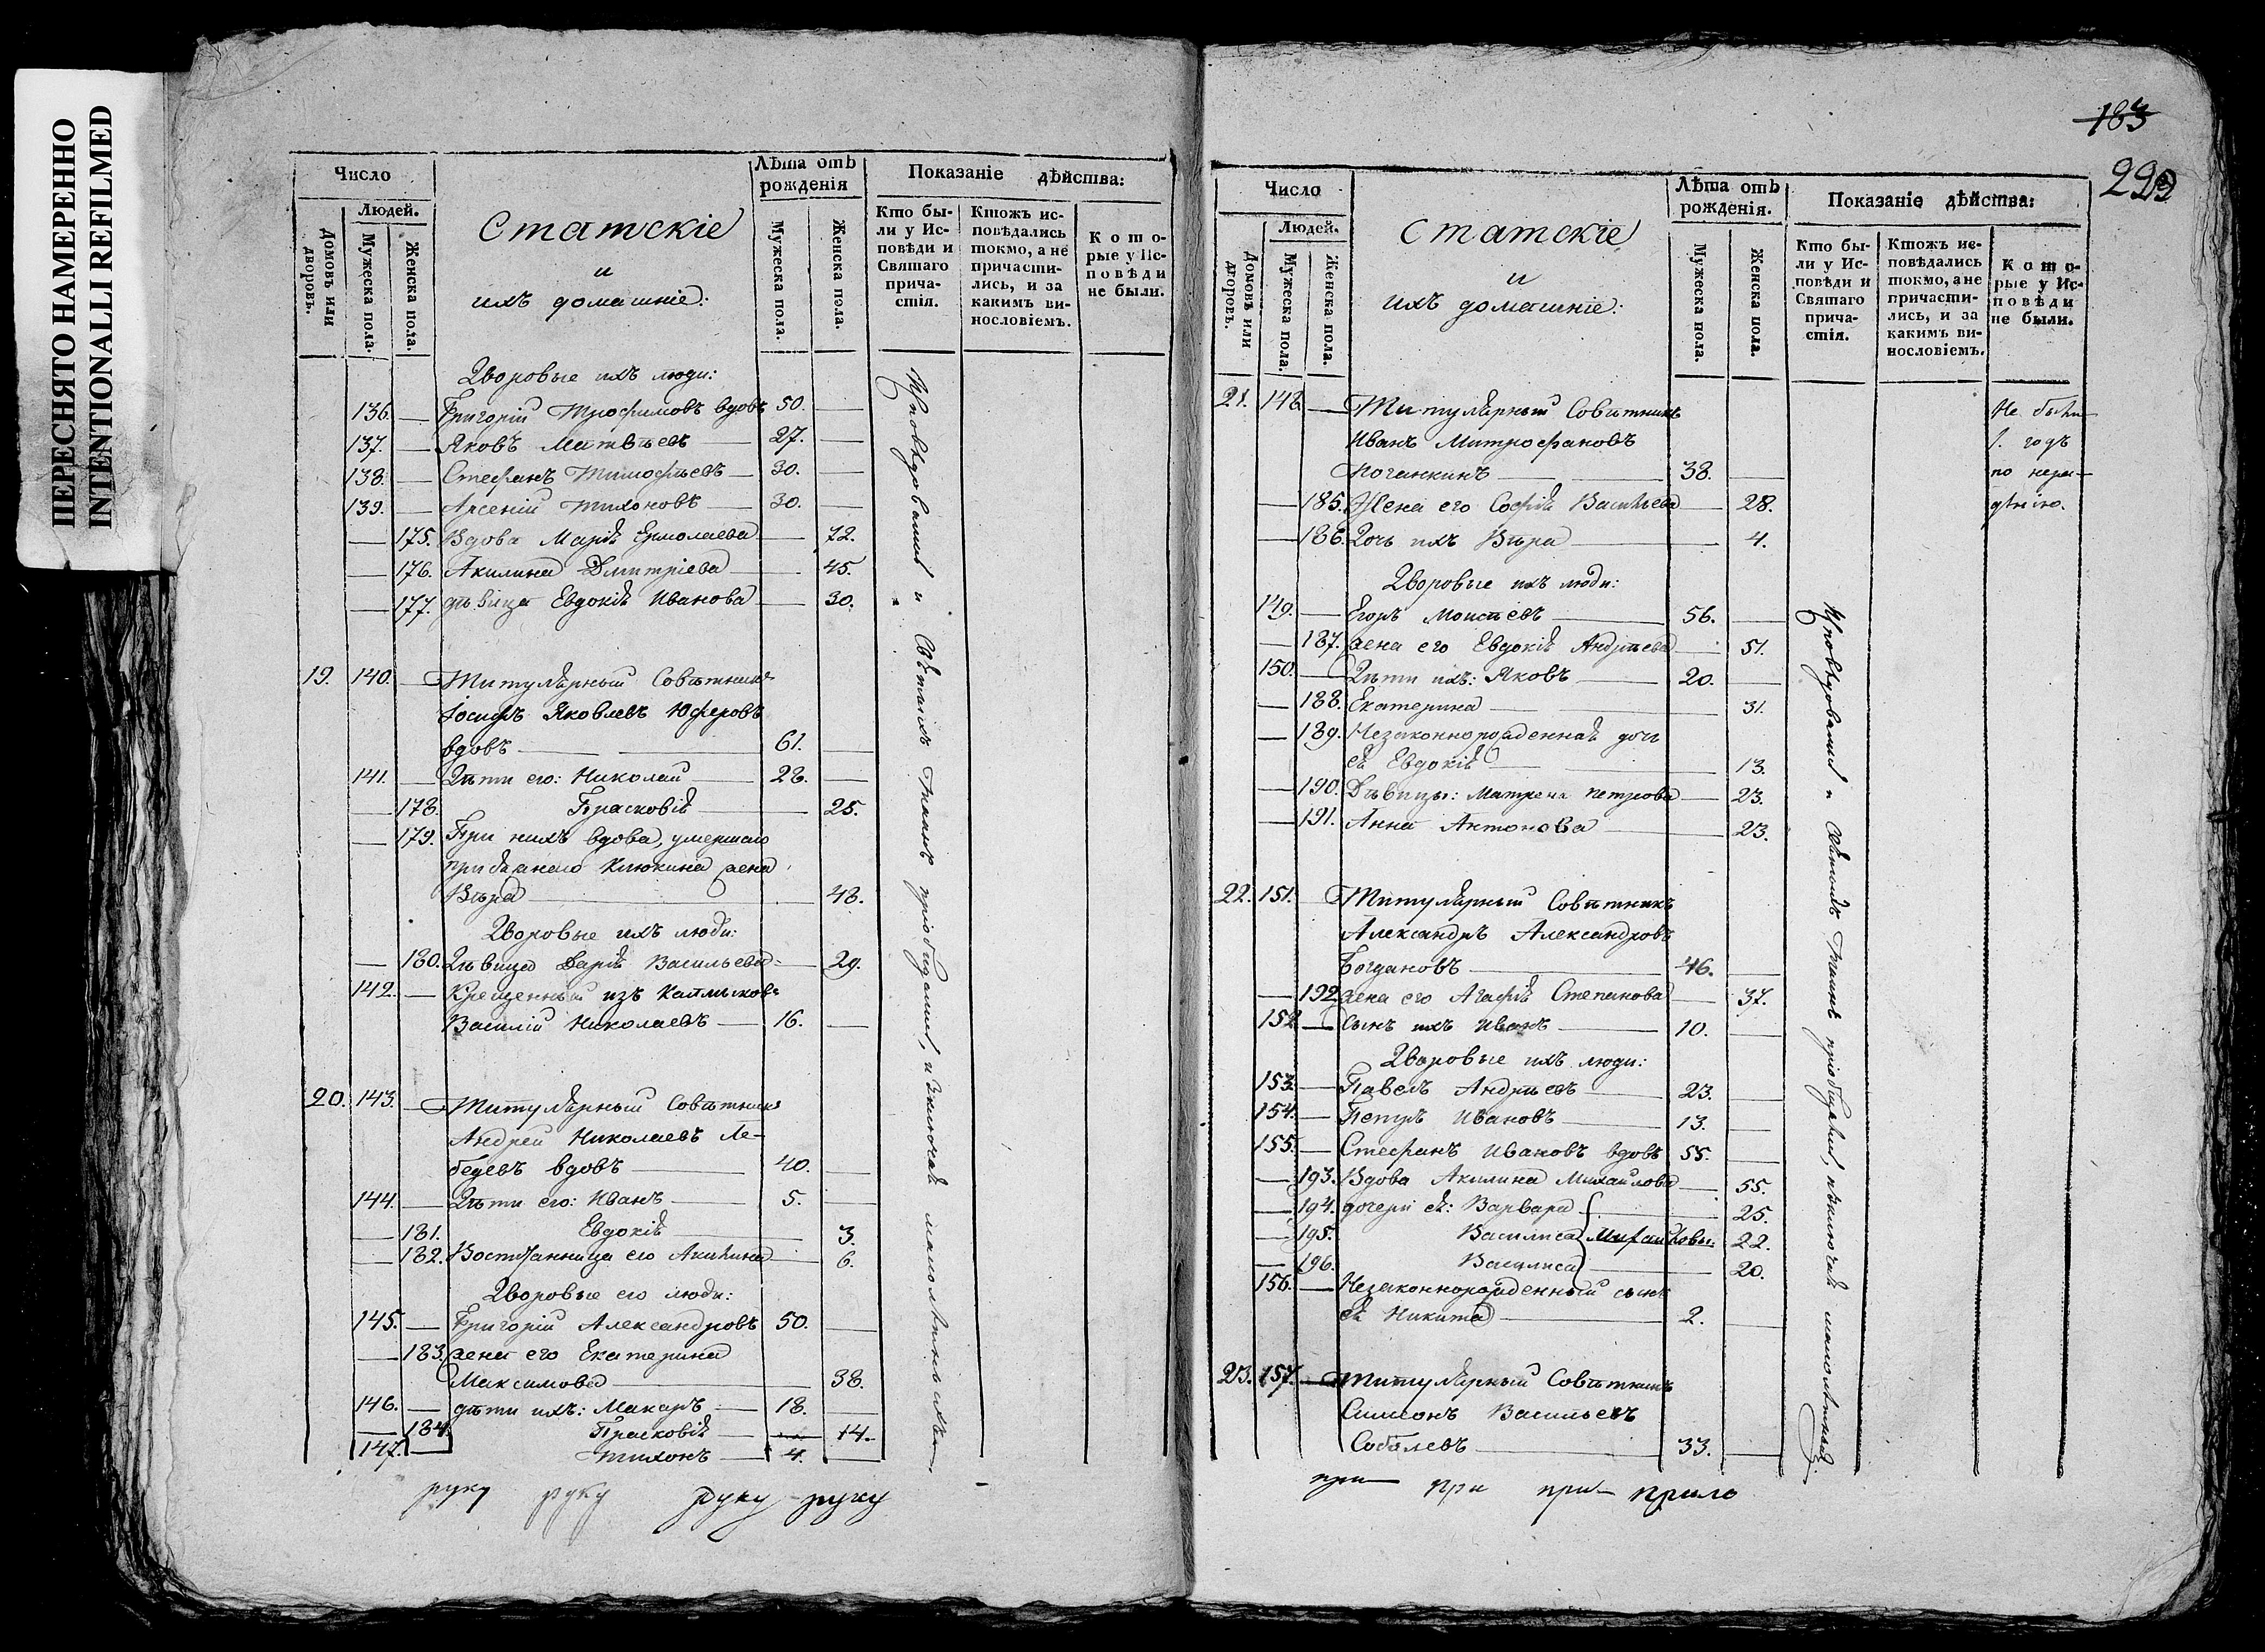 ПЕРЕСНЯТО НАМЕРЕННО
INTENTIONALLI REFILMED
Число
Людей.
Домовъ или дворовъ.
Мужеска пола.
Женска пола.
Статскіе
и
ихъ домашніе:
Лѣта отъ рожденія
Мужеска пола.
Женска пола.
Показаніе дѣйства:
Кто были у Исповѣди и Святаго причастія.
Ктожъ исповѣдались токмо, а не причастились, и за какимъ винословіемъ.
Которые у Исповѣди не были.
Дворовые ихъ люди:
136. — Григорій Трофимовъ вдовъ 50. —
137. — Яковъ Матвѣевъ — 27. —
138. — Стефанъ Тимофѣевъ — 30. —
139. — Арсеній Тихоновъ — 30. —
— 175. Вдова Марія Ермолаева — 72.
— 176. Акилина Дмитріева — 45.
— 177. дѣвица Евдокія Иванова — 30.
19. 140. — Титулярный Совѣтникъ
Іосифъ Яковлевъ Юферовъ
вдовъ — 61. —
141. — Дѣти его: Николай — 28. —
— 178. Прасковія — 25.
— 179. При нихъ вдова, умершаго
Клюкина жена
Вѣра — 48.
Дворовые ихъ люди:
— 180. Дѣвица Дарія Васильева — 29.
142. — Крещенный изъ Калмыковъ
Василій Николаевъ — 16. —
20. 143. — Титулярный Совѣтникъ
Андрей Николаевъ Ле-
бедевъ вдовъ — 40. —
144. — Дѣти его: Иванъ — 5. —
— 181. Евдокія — 3.
— 182. Воспитанница его Акилина — 6.
Дворовые его люди:
145. — Григорій Александровъ 50. —
— 183. жена его Екатерина
Максимова — 38.
146. — дѣти ихъ: Макаръ — 18. —
— 184. Прасковія — 14.
147. — Тихонъ — 4. —
Исповѣдовались и Святыхъ Таинъ пріобщались, изключая малолѣтныхъ
руку руку руку руку
183
229
Число
Людей.
Домовъ или дворовъ.
Мужеска пола.
Женска пола.
Статскіе
и
ихъ домашніе:
Лѣта отъ рожденія.
Мужеска пола.
Женска пола.
Показаніе дѣйства:
Кто были у Исповѣди и Святаго причастія.
Ктожъ исповѣдались токмо, а не причастились, и за какимъ винословіемъ.
Которые у Исповѣди не были.
21. 148. — Титулярный Совѣтникъ
Иванъ Митрофановъ
Поганкинъ — 38. —
— 185. Жена его Софія Васильева — 28.
— 186. Дочь ихъ Вѣра — 4.
Не были
1. годъ
по нера-
дѣнію.
Дворовые ихъ люди:
149. — Егоръ Моисѣевъ — 56. —
— 187. жена его Евдокія Андрѣева — 51.
150. — Дѣти ихъ: Яковъ — 20. —
— 188. Екатерина — 31.
— 189. Незаконнорожденная дочь
ея Евдокія — 13.
— 190. Дѣвицы: Матрена Петрова — 23.
— 191. Анна Антонова — 23.
22. 151. Титулярный Совѣтникъ
Александръ Александровъ
Богдановъ — 46. —
— 192. жена его Агафія Степанова — 37.
152. — Сынъ ихъ Иванъ — 10. —
Дворовые ихъ люди:
153. — Павелъ Андрѣевъ — 23. —
154. — Петръ Ивановъ — 13. —
155. — Стефанъ Ивановъ вдовъ 55. —
— 193. Вдова Акилина Михайлова — 55.
— 194. дочери ея: Варвара — 25.
— 195. Василиса Михайловы 22.
— 196. Василиса — 20.
156. — Незаконнорожденный сынъ
ея Никита — 2. —
23. 157. — Титулярный Совѣтникъ
Симеонъ Васильевъ
Соболевъ — 33. —
Исповѣдовались и Святыхъ Таинъ пріобщались, изключая малолѣтныхъ
при— при при— прило